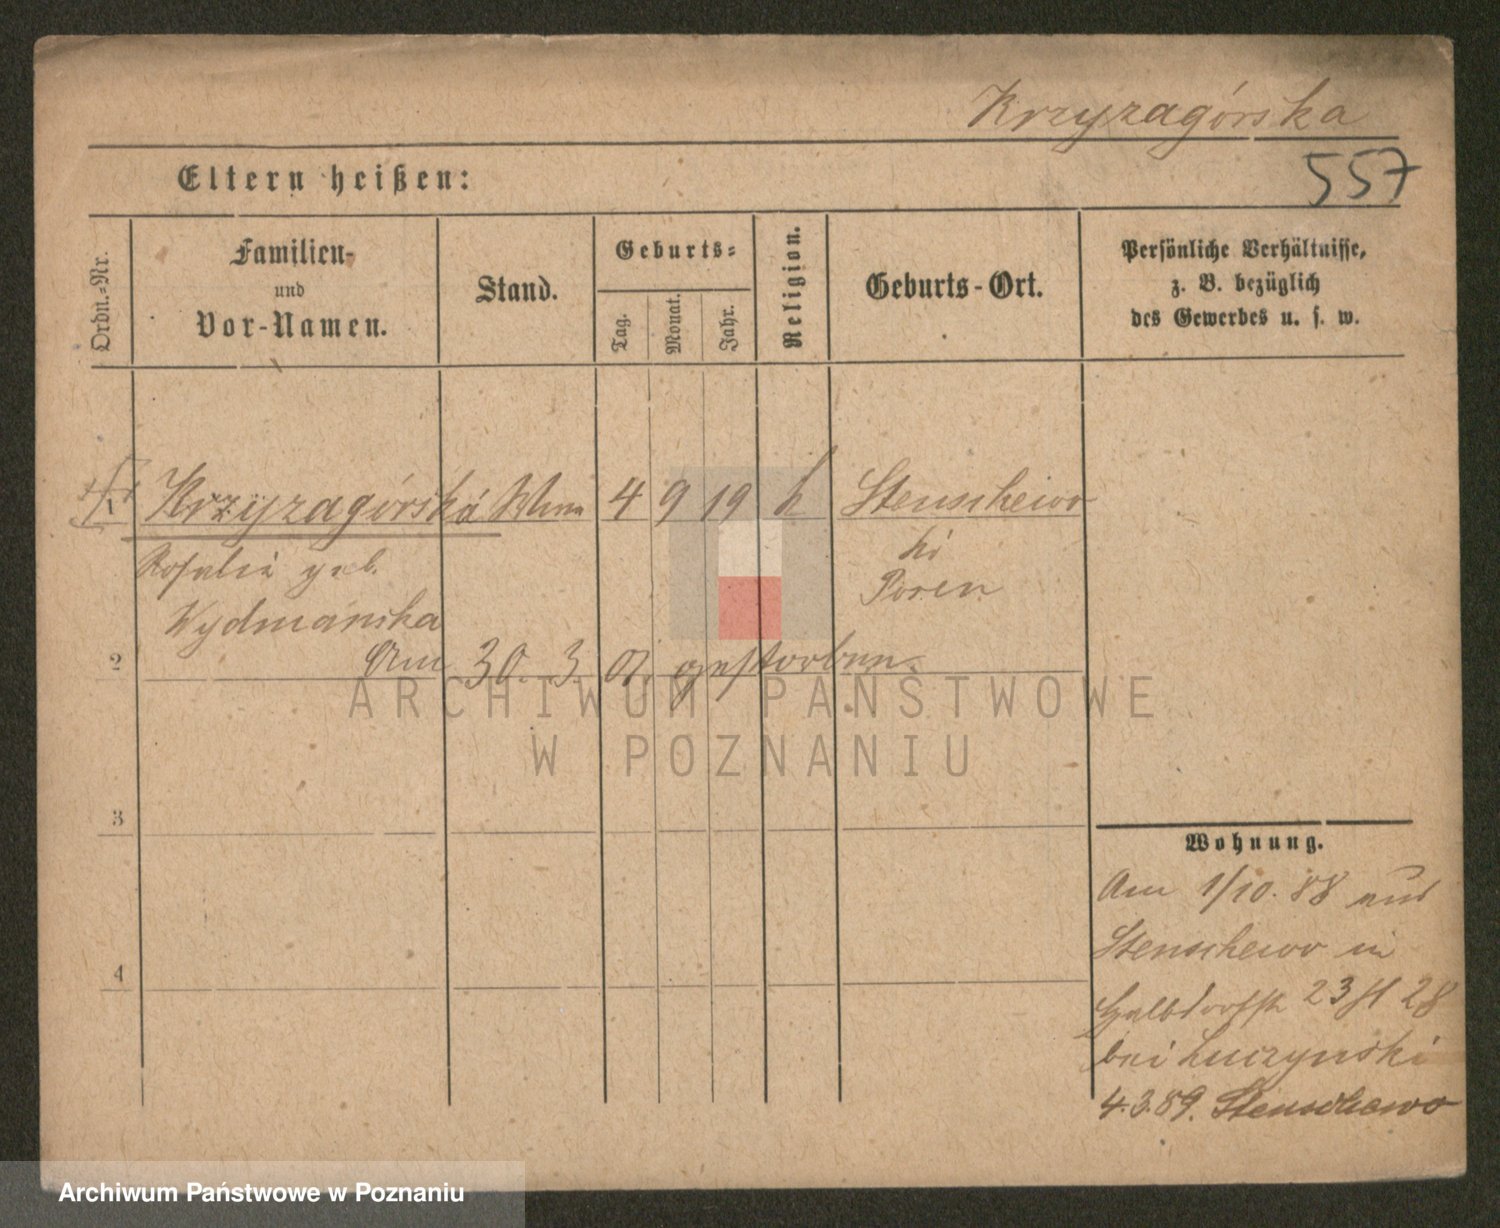 Krzyzagórska
557
Eltern heißen:
Ordn.-Nr.
Familien-
und
Vor-Namen.
Stand.
Geburts-
Tag.
Monat.
Jahr.
Religion.
Geburts-Ort.
Persönliche Verhältnisse,
z. B. bezüglich
des Gewerbes u. s. w.
1
Krzyzagórska Wwe 4 9 19 k Stenschewo
Rosalie geb.
Kr
Posen
Wydmańska
2
Am 30. 3. 07. gestorben.
ARCHIWUM PAŃSTWOWE
W POZNANIU
3
4
Wohnung.
Am 1/10. 88 aus
Stenschewo in
Halbdorfstr 23 28
bei Luczynski
4.3.89. Stenschewo
Archiwum Państwowe w Poznaniu